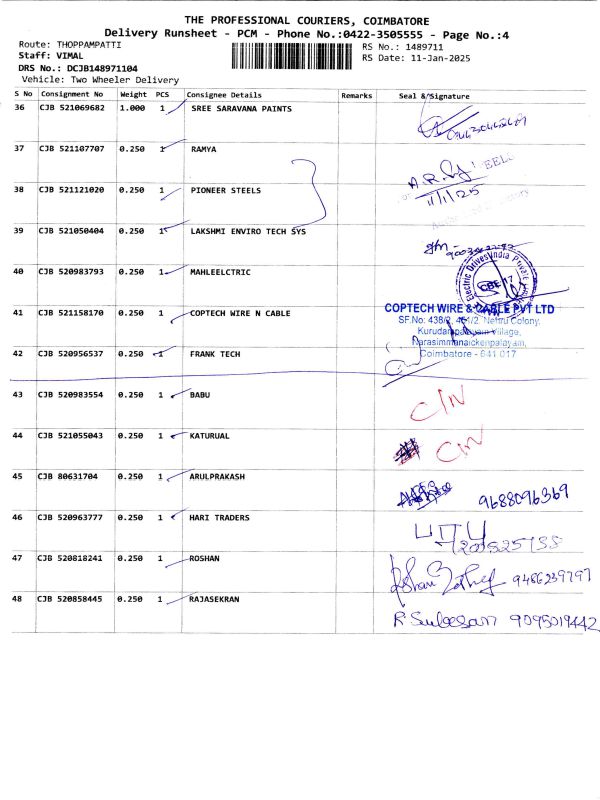 THE PROFESSIONAL COURIERS, COIMBATORE
Delivery Runsheet - PCM - Phone No.:0422-3505555 - Page No.:4
Route: THOPPAMPATTI
RS No.: 1489711
Staff: VIMAL
RS Date: 11-Jan-2025
DRS No.: DCJB148971104
Vehicle: Two Wheeler Delivery
S No Consignment No Weight PCS Consignee Details Remarks Seal & Signature
36 CJB 521069682 1.000 1 SREE SARAVANA PAINTS
37 CJB 521107707 0.250 1 RAMYA
38 CJB 521121020 0.250 1 PIONEER STEELS
11/1/25
39 CJB 521050404 0.250 1 LAKSHMI ENVIRO TECH SYS
40 CJB 520983793 0.250 1 MAHLEELCTRIC
Electric Drives India Private
CBE 17
41 CJB 521158170 0.250 1 COPTECH WIRE N CABLE
COPTECH WIRE & CABLE PVT LTD
SF.No: 438/2, Nehru Colony,
Village,
Narasimmanaickenpalayam,
Coimbatore - 641 017
42 CJB 520956537 0.250 1 FRANK TECH
43 CJB 520983554 0.250 1 BABU
C/N
44 CJB 521055043 0.250 1 KATURUAL
C/N
45 CJB 80631704 0.250 1 ARULPRAKASH
9688096369
46 CJB 520963777 0.250 1 HARI TRADERS
47 CJB 520818241 0.250 1 ROSHAN
9486239797
48 CJB 520858445 0.250 1 RAJASEKRAN
9095019442